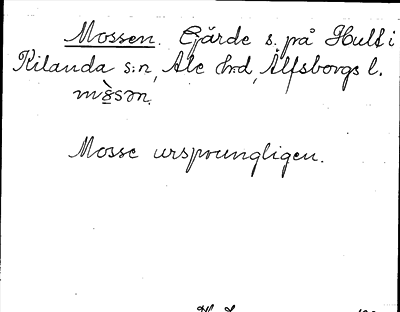 Mossen. Gärde s. på Hult i
Kilanda s:n, Ale hrd, Älfsborgs l.
mòsən.
Mosse ursprungligen.